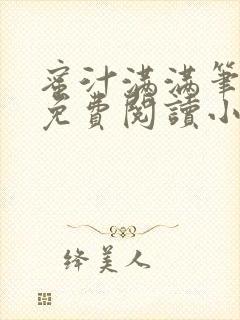 蜜汁满满筆
免費閱讀小
绛美人